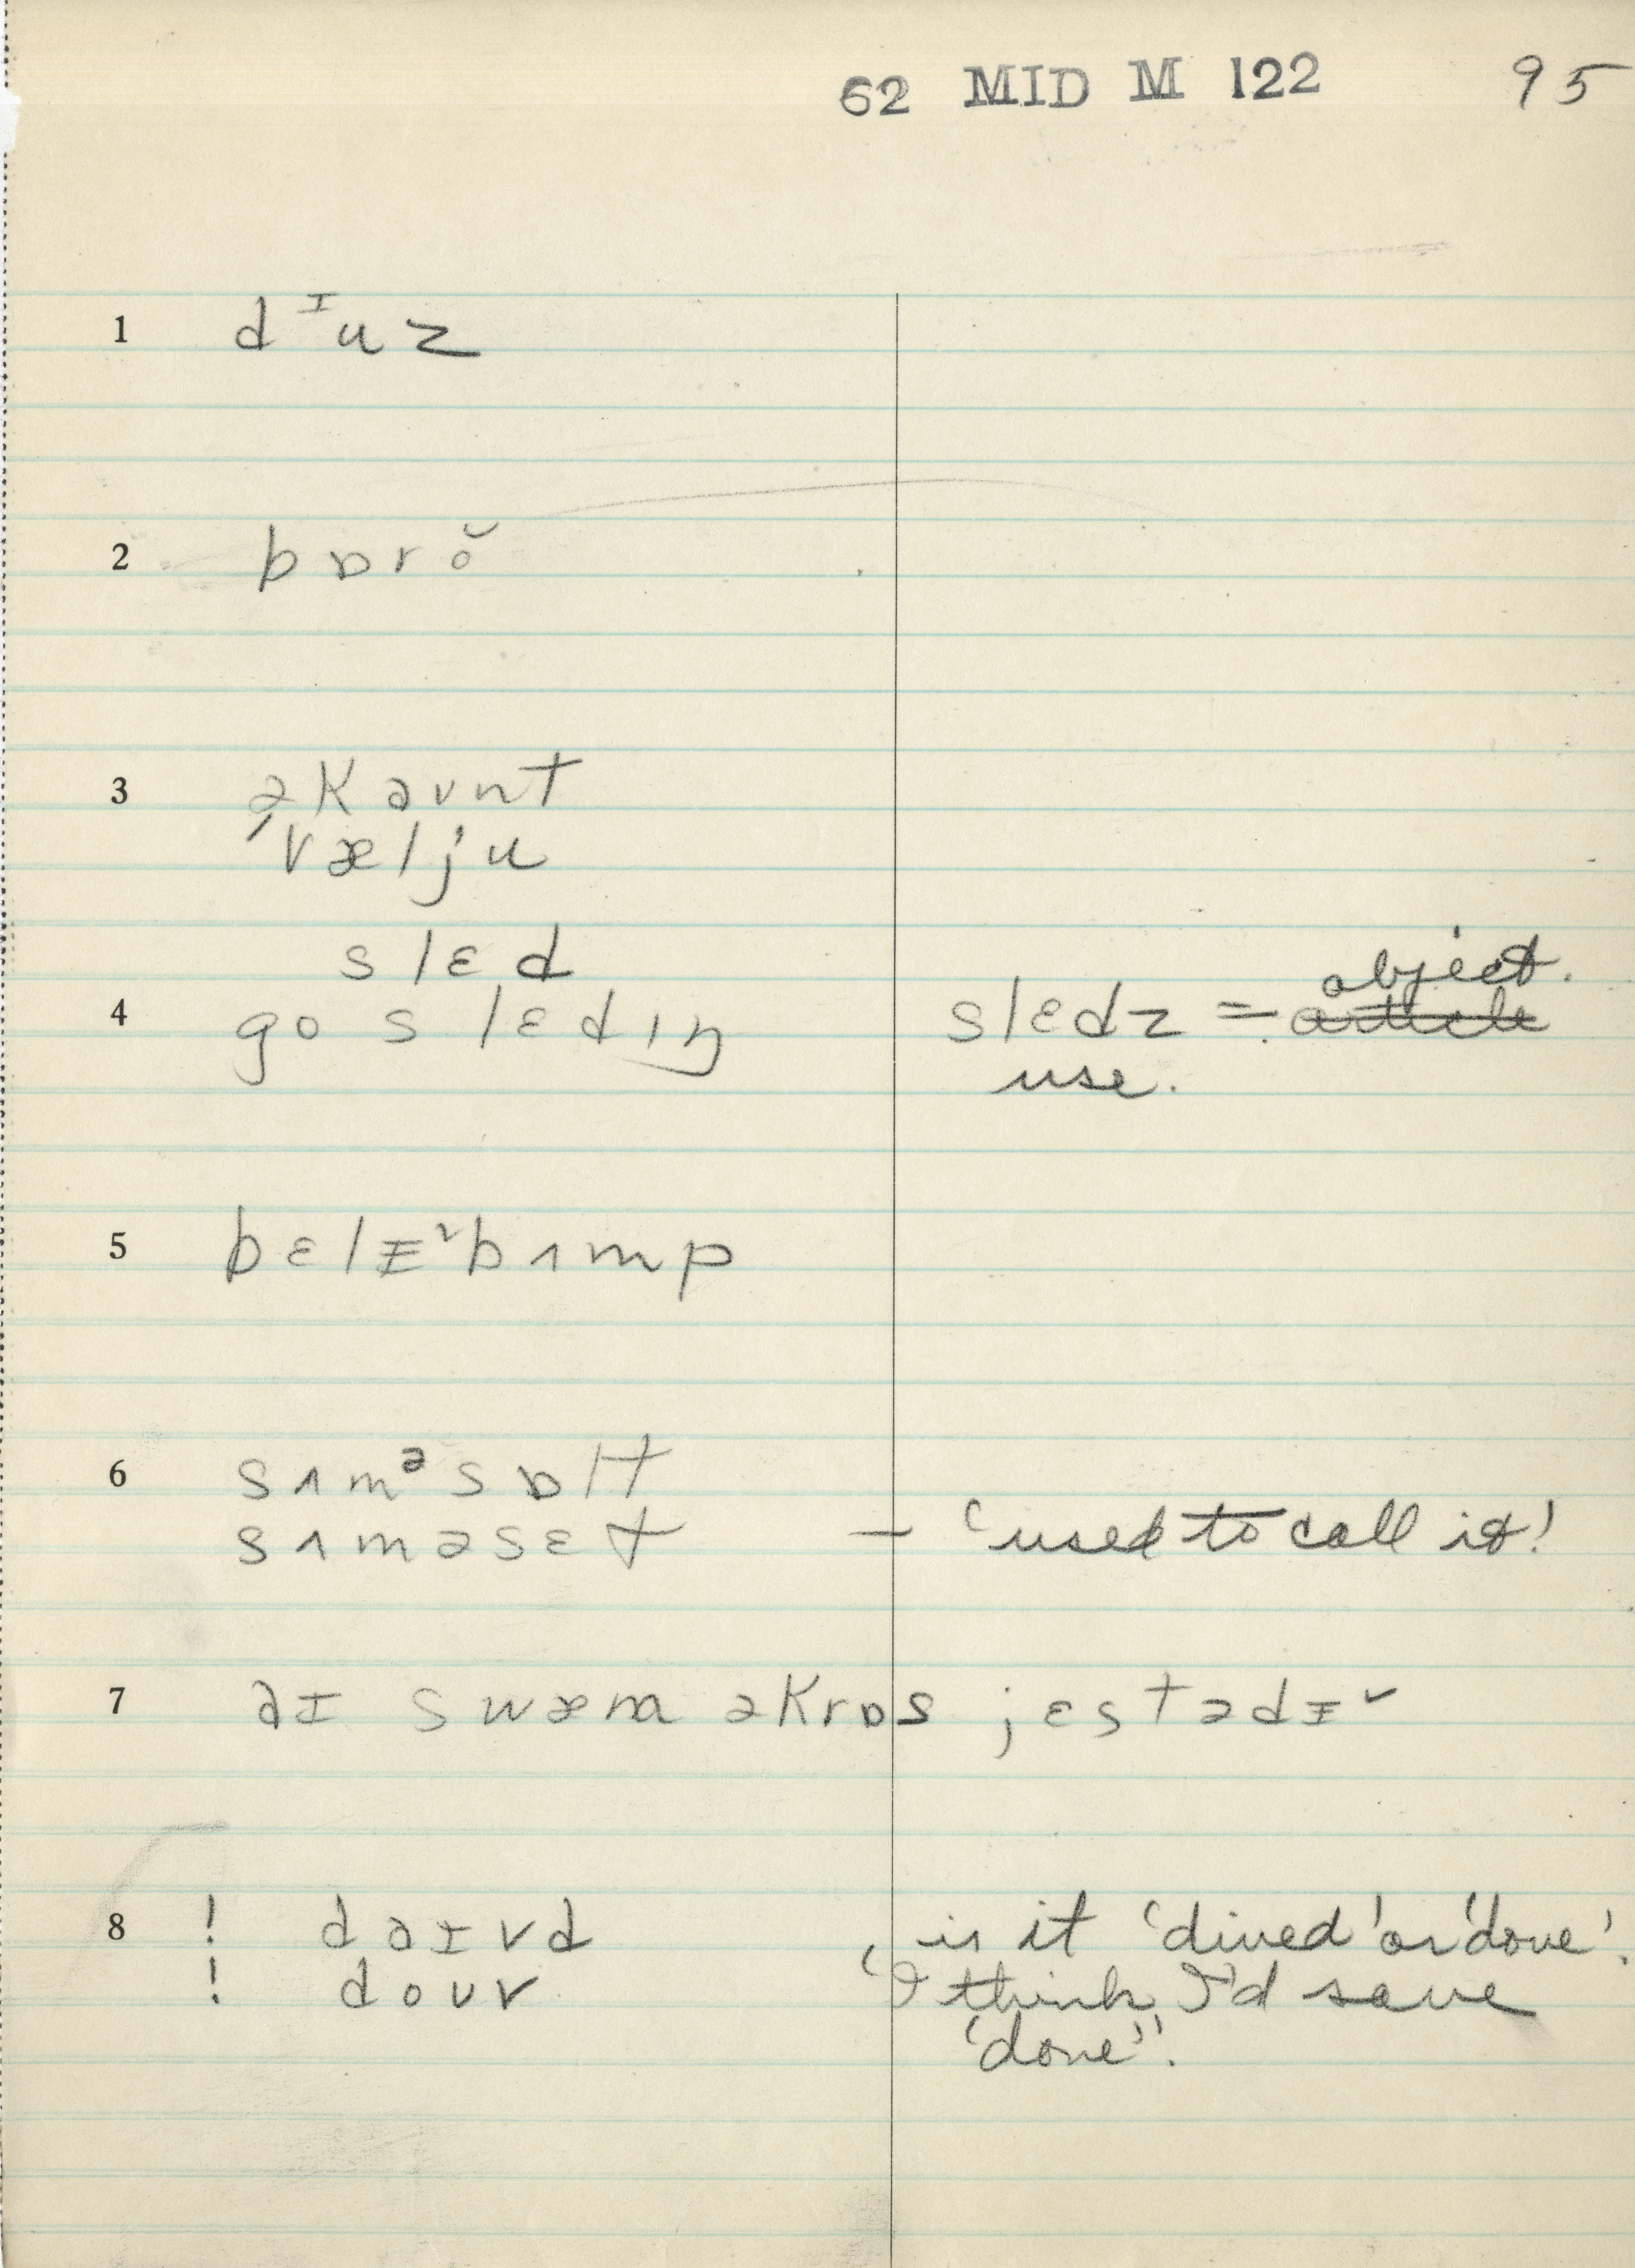 62 MID M 122 95
1 dᶦuz
2 bɒrŏ
3 əkaunt
ˈvælju
slɛd
4 go slɛdɪŋ slɛdz = article object.
use.
5 bɛlɪˇbʌmp
6 sʌmᵊsɒlt
sʌməsɛt — 'used to call it'
7 aɪ swæm əkrɒs jɛstədɪˇ
8 ! daɪvd is it 'dived' or 'dove'.
! douv 'I think I'd save
'dove''.